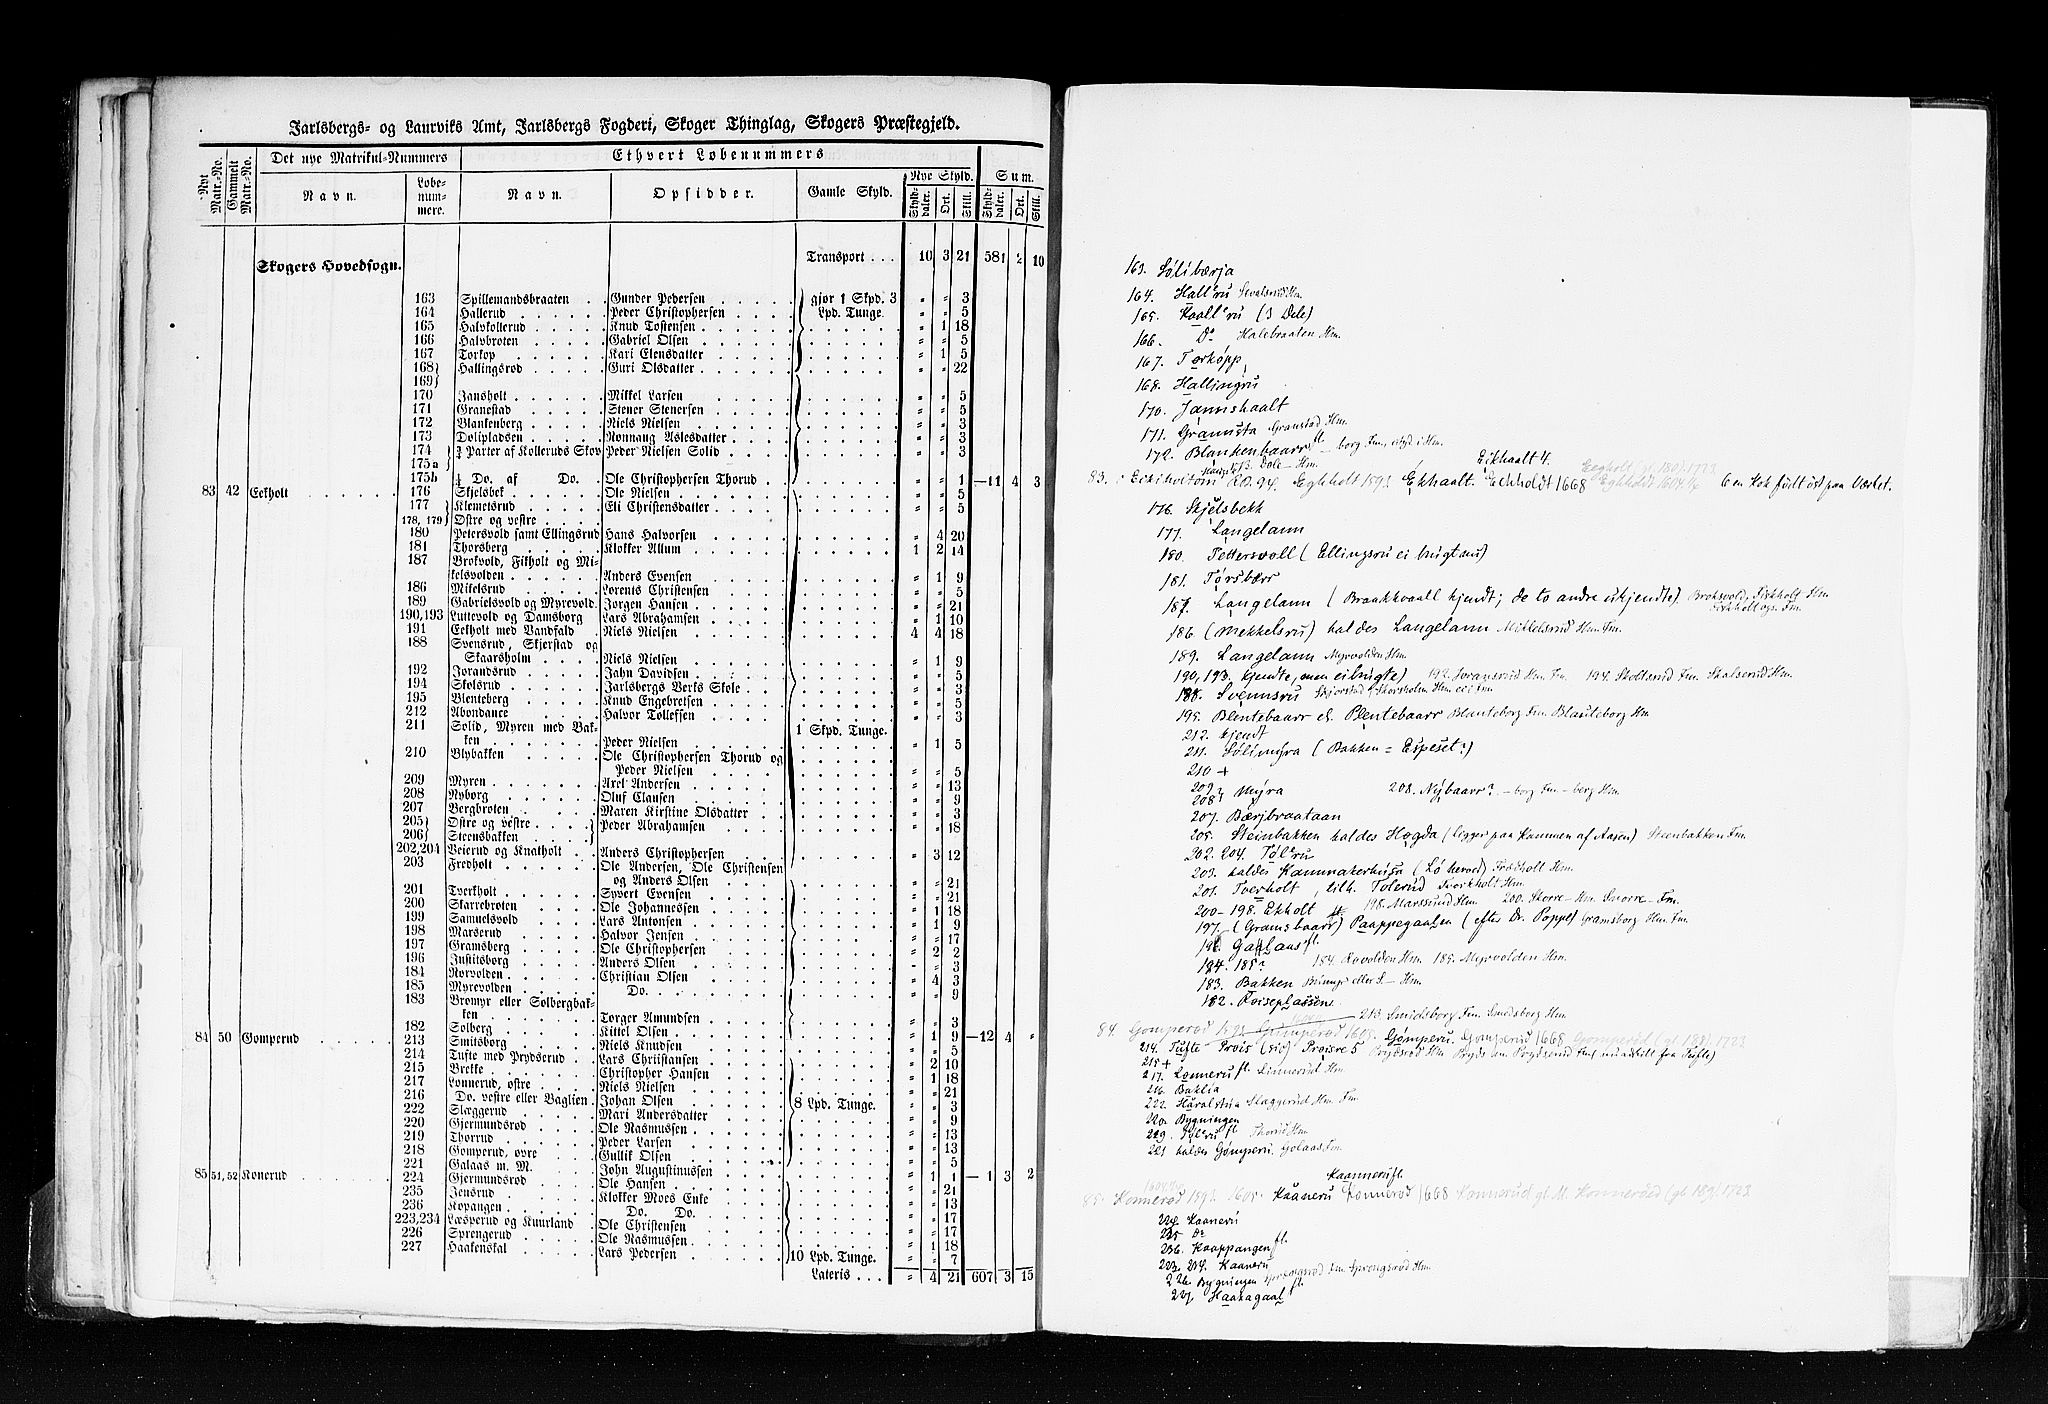 Jarlsbergs- og Laurviks Amt, Jarlsbergs Fogderi, Skoger Thinglag, Skogers Præstegjeld.
Nyt Matr.-No. Gammelt Matr.-No. Det nye Matrikul-Nummers Ethvert Løbenummers
Navn. Løbe-nummere. Navn. Opsidder. Gamle Skyld. Nye Skyld. Sum.
Skylddaler. Ort. Skill. Skylddaler. Ort. Skill.
Skogers Hovedsogn. Transport . . . 10 3 21 581 2 10
163 Spillemandsbraaten . . Gunder Pedersen . . . . . gjør 1 Skpd. 3 " " 3
164 Hallerud . . . . . Peder Christophersen . . . . Lpd. Tunge. " " 5
165 Halvkollerud . . . Knud Tostensen . . . . . " 1 18
166 Halvbroten . . . . Gabriel Olsen . . . . . " " 5
167 Torkop . . . . . Kari Elensdatter . . . . " 1 5
168} Hallingsrød . . . . . Guri Olsdatter . . . . . " " 22
169}
170 Jansholt . . . . . Mikkel Larsen . . . . . " " 5
171 Granestad . . . . Stener Stenersen . . . . " " 5
172 Blankenberg . . . . Niels Nielsen . . . . . " " 3
173 Dolipladsen . . . . Rønnaug Aslesdatter . . . " " 3
174 } Parter af Kolleruds Skov Peder Nielsen Solid . . . " " 3
175a
175b Do. af Do. . Ole Christophersen Thorud . . " " 1 — 11 4 3
83 42 Eekholt . . . . . 176 Skjelsbek . . . . . Ole Nielsen . . . . . " " 5
177 Klemetsrud . . . . Eli Christensdatter . . . . " " 5
178, 179 Østre og vestre . . .
180 Petersvold samt Ellingsrud Hans Halvorsen . . . . " 4 20
181 Thorsberg . . . . . Klokker Allum . . . . . 1 2 14
187 Brokvold, Fikholt og Mi-
kelsvolden . . . . . Anders Evensen . . . . . " 1 9
186 Mikelsrud . . . . . Lorents Christensen . . . . " " 5
189 Gabrielsvold og Myrevold. Jørgen Hansen . . . . . " " 21
190,193 Luttevold og Damsborg . Lars Abrahamsen . . . . " 1 10
191 Eekholt med Vandfald . Niels Nielsen . . . . . 4 4 18
188 Svensrud, Skjerstad og
Skaarsholm . . . . Niels Nielsen . . . . . " 1 9
192 Jorandsrud . . . . . Jahn Davidsen . . . . . " " 5
194 Skolsrud . . . . . Jarlsbergs Verks Skole . . . " " 3
195 Blenteberg . . . . . Knud Engebretsen . . . . " " 5
212 Abondance . . . . . Halvor Tollefsen . . . . " " 3
211 Solid, Myren med Bak- 1 Skpd. Tunge.
ken . . . . . Peder Nielsen . . . . . " 1 5
210 Blybakken . . . . . Ole Christophersen Thorud og
Peder Nielsen . . . . . " " 5
209 Myren . . . . . Axel Andersen . . . . . " " 13
208 Nyborg . . . . . Oluf Clausen . . . . . " " 9
207 Bergbroten . . . . . Maren Kirstine Olsdatter . . " " 3
205} Østre og vestre . . . .} Peder Abrahamsen . . . . " " 18
206} Steensbakken . . . .}
202,204 Veierud og Knatholt . . Anders Christophersen . . . " 3 12
203 Fredholt . . . . . Ole Andersen, Ole Christensen
og Anders Olsen . . . . " " 21
201 Tverkholt . . . . . Syvert Evensen . . . . . " " 21
200 Skarrebroten . . . . Ole Johannessen . . . . " 1 18
199 Samuelsvold . . . . Lars Antonsen . . . . . " 1 9
198 Marserud . . . . . Halvor Jensen . . . . . " " 17
197 Gramsberg . . . . . Ole Christophersen . . . . " 2 2
196 Justitsborg . . . . Anders Olsen . . . . . " " 3
184 Rørvolden . . . . . Christian Olsen . . . . . " 4 3
185 Myrevolden . . . . . Do. . . . . . " " 9
183 Bromyr eller Solbergbak-
ken . . . . . Torger Amundsen . . . . " " 3
182 Solberg . . . . . Kittel Olsen . . . . . " 1 9 — 12 4 "
84 50 Gomperud . . . . . 213 Smitsborg . . . . . Niels Knudsen . . . . . " " 5
214 Tufte med Prydserud . . Lars Christiansen . . . . " 2 10
215 Brekke . . . . . Christopher Hansen . . . . " 1 18
217 Lonnerud, østre . . . Niels Nielsen . . . . . " " 21
216 Do. vestre eller Baglien . Johan Olsen . . . . . 8 Lpd. Tunge. " " 3
222 Slæggerud . . . . . Mari Andersdatter . . . . " " 9
220 Gjermundsrød . . . . Ole Rasmussen . . . . . " " 13
219 Thorrud . . . . . Peder Larsen . . . . . " " 13
218 Gomperud, øvre . . . Gullik Olsen . . . . . " " 5
221 Galaas m. M. . . . . John Augustinussen . . . . " 1 1 — 1 3 2
85 51, 52 Konerud . . . . . 224 Gjermundsrød . . . . Ole Hansen . . . . . " " 21
235 Jensrud . . . . . Klokker Moes Enke . . . . " " 13
236 Kopangen . . . . . Do. Do. . . . . " " 17
223,234 Læsperud og Kuurland . Ole Christensen . . . . . " " 17
226 Sprengerud . . . . . Ole Rasmussen . . . . . " 1 18
227 Haakenskal . . . . . Lars Pedersen . . . . . 10 Lpd. Tunge. " " 7
Lateris . . . " 4 21 607 3 15
163. Sølibærja
164. Hall'ru Sevalsrud Hm.
165. Kaall'ru (3 Dele)
166. Do Halebraaten Hm.
167. Torkøpp
168. Hallingru
170. Jannshaalt
171. Gramsta Granstad Hm.
172. Blankenbaarr fl. – borg Fm., utyd i Hm.
173. Dole – Hm. Eikhaalt 4. Eegholt (gl. 180). 1723
83. Eckiholtom R.B. 94. Eghholt 1593 Ekhaalt. Echholdt 1668 Eghholdt 1604 6 en Kok fuldt øst paaVærket.
176. Skjelsbekk
177. Langelann
180. Pettersvoll (Ellingsru ei brugt nu)
181. Torsbærr
187. Langelann (Braakkvaall kjendt; de to andre ukjendte) Broksvold, Fikholt Hm
Fikholt ogs. Fm.
186. (Mekkelsru) kaldes Langelann Mikkelsrud Hm. Fm.
189. Langelann Myrvolden Hm.
190, 193. kjendte, men ei brugte) 192. Joransrud Hm. Fm. 194. Skoltsrud Fm. Skalserud Hm.
188. Svennsru Skjerstad, Skorsholm Hm. ei i Fm.
195. Blentebaarr el. Plentebaarr Blanteborg Fm. Blauteborg Hm
212. kjendt
211. Sølimyra (Bakken = Espeset?)
210 +
209} Myra 208. Nybaarr? – borg Fm. – berg Hm.
208}
207. Bærjbraataan
205. Steinbakken kaldes Høgda (ligger paa Kammen af Aasen) Steenbakken Fm.
202. 204. Tøl'ru
203. kaldes Kammakerhusa Fredholt Hm.
201. Tverholt, lilh. Tolerud Tverkholt Hm.
200–198. Ekholt 198. Marssrud Hm. 200. Skorre – Hm. Snorre – Fm.
197. (Gramsbaarr) Paappegaalen (efter Dr. Poppe) Gramsborg Hm. Fm.
196. Galaas fl.
184. 185? 184. Rovolden Hm. 185. Myrvolden Hm.
183. Bakken Brumyr eller S. – Hm.
182. Roiseplassen
213. Smideborg Fm. Smedsborg Hm.
84. Gomperød 1593 Gomperød 1605. Gømperu. Gomperud 1668 Gomperød (gl. 188). 1723
214. Tufte Prøis (sic) Prøisre 5 Brydserud Hm
215 +
217. Lonneru fl. Linnerud Hm.
216. Baklia
222. Haralstua Slaggerud Hm. Fm.
220. Bygningen
219. Tøl'ru fl. Thorrud Hm
221 kaldes Gømperu. Golaas Fm.
Kaanneru fl.
85. Konnerød 1593. 1605. Kaaneru Konnerød 1668 Konnerud gl. M. Konnerøed (gl. 189). 1723
224. Kaaneru
225 Do
236. Kaappangen fl.
223. 234. Kaaneru
226. Bygningen Sprengsrød Fm. Sprengsrød Hm.
227. Haakagaal fl.